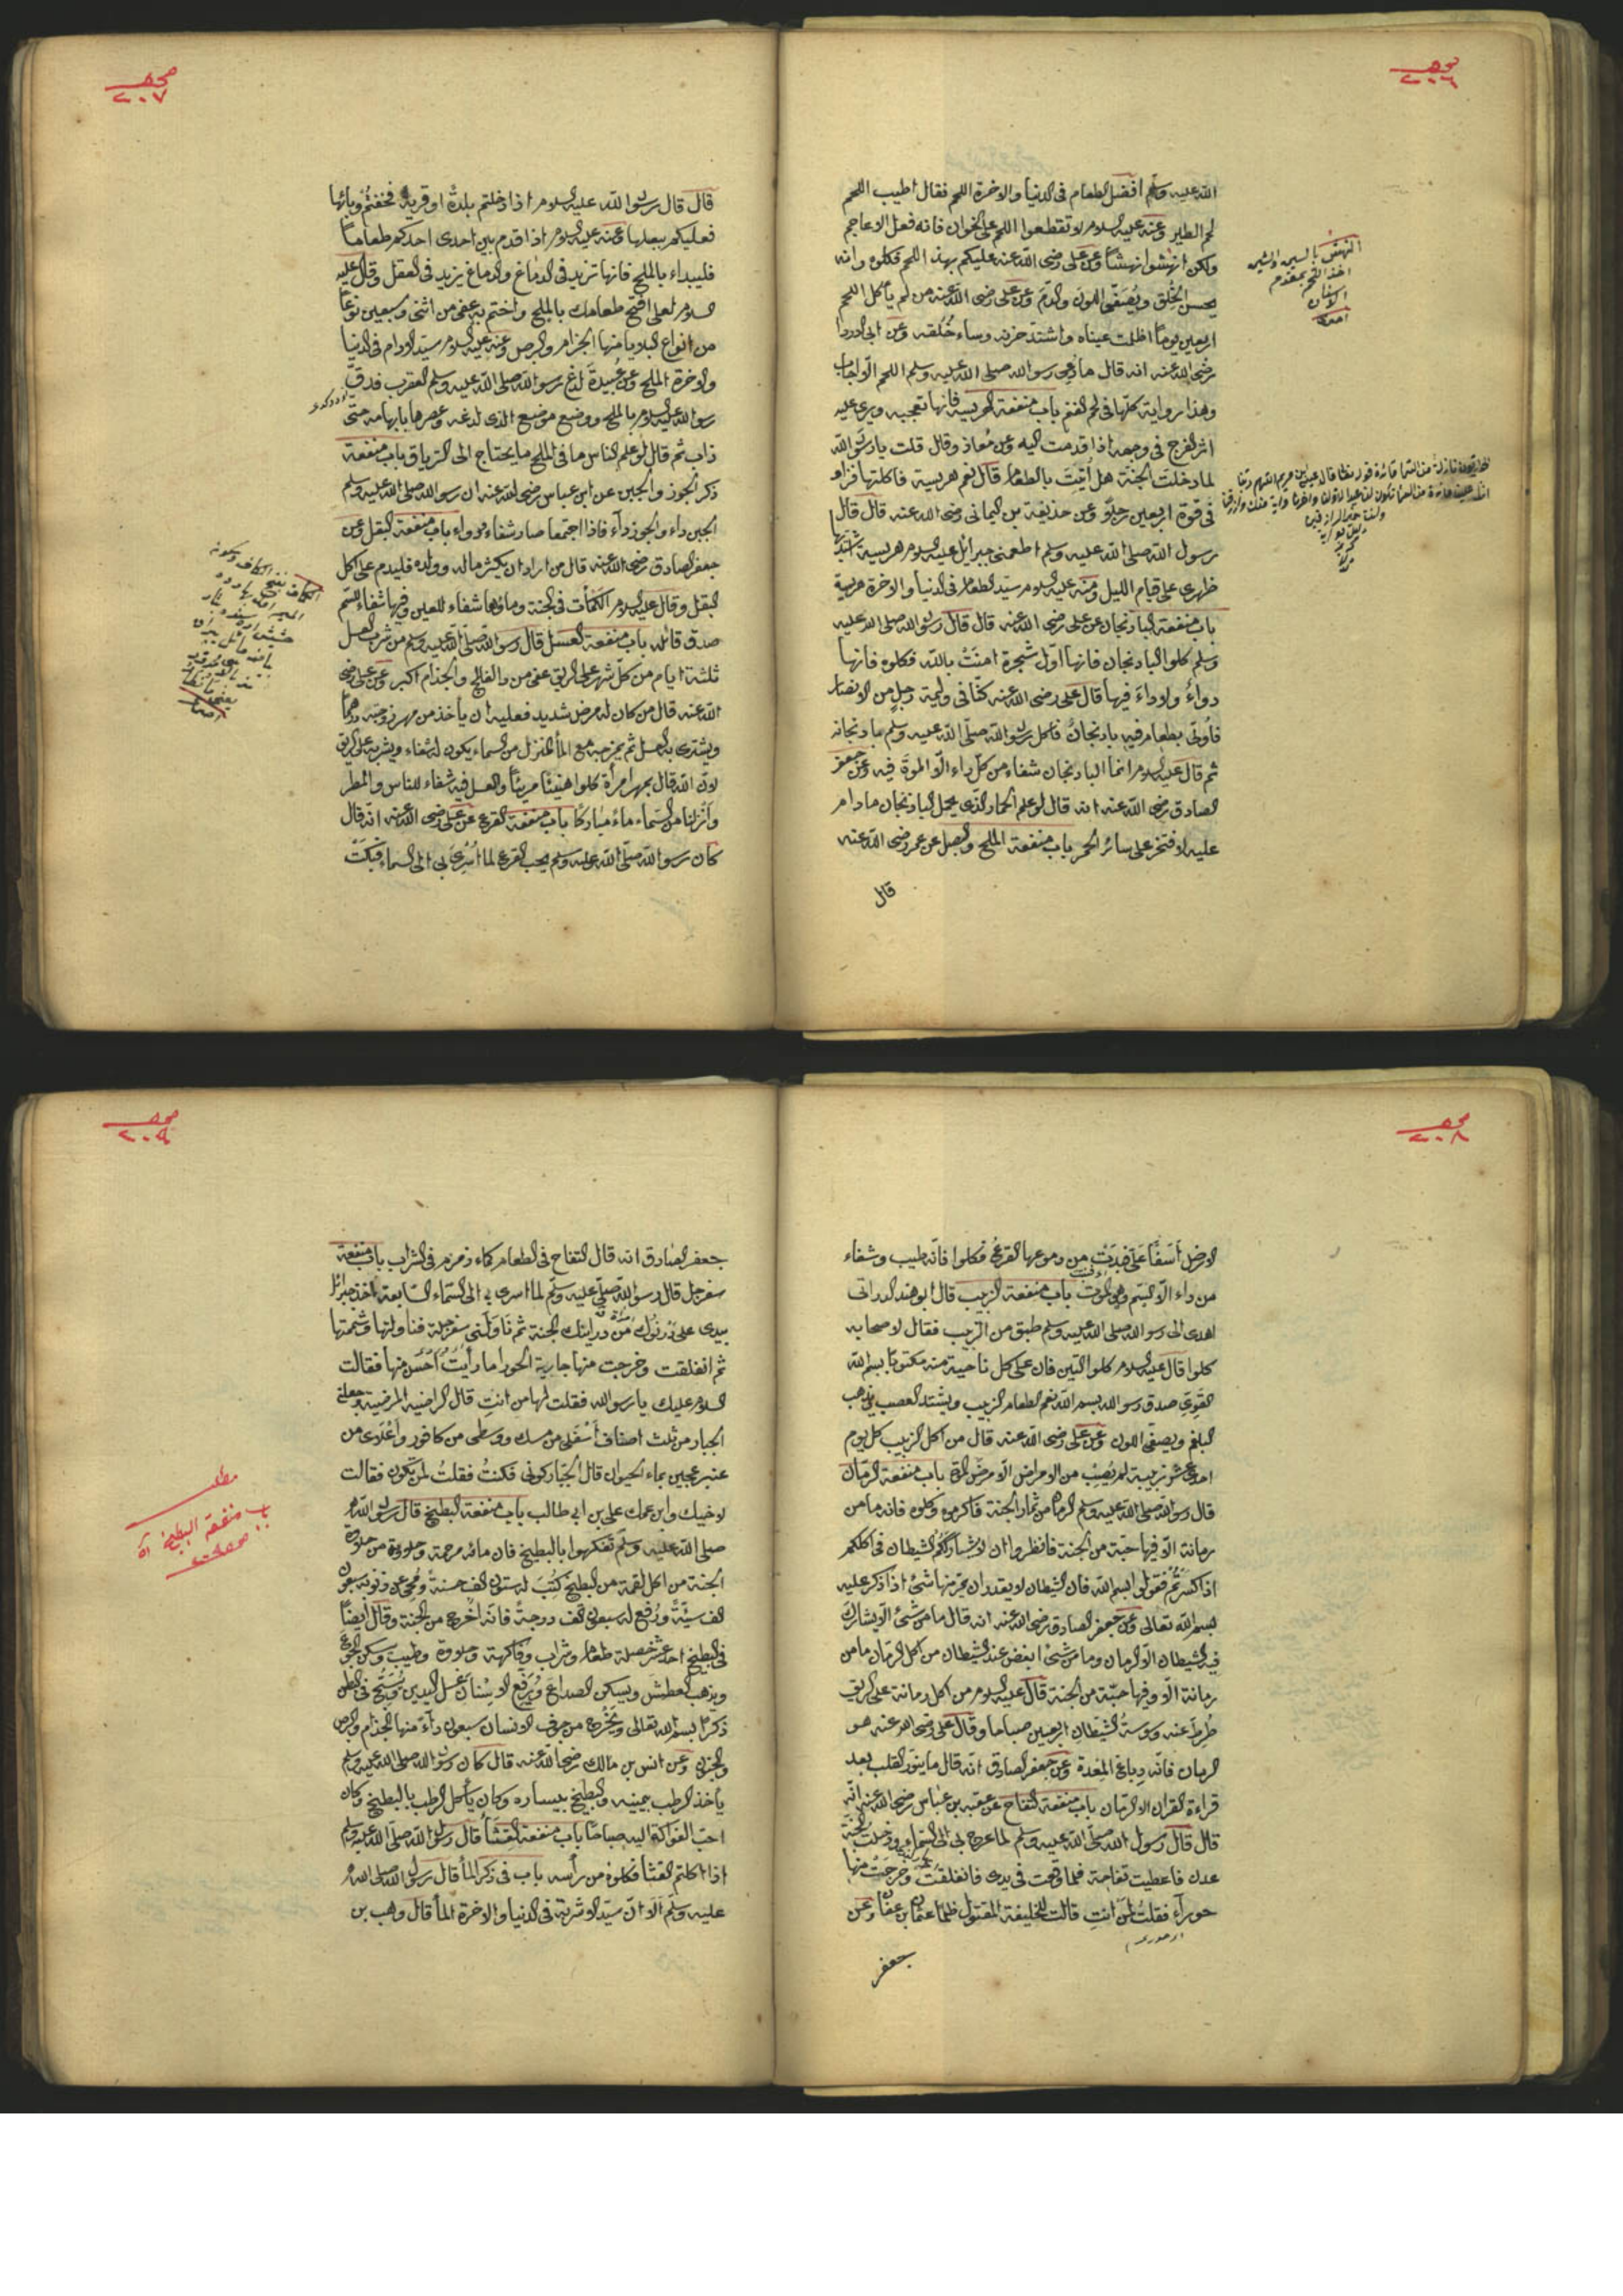 صحـ
٢٠٦
الله عليه وسلم افضل الطعام فى الدنيا والاخرة اللحم فقال اطيب اللحم
لحم الطير وعنه عليه السلام لا تقطعوا اللحم على الخوان فانه فعل الاعاجم
ولكن انهشوا نهشاً وعن على رضى الله عنه عليكم بهذا اللحم فكلوه وانه
يحسن الخُلق ويُصَفّى اللونَ والدّمَ وعن على رضى الله عنه من لم يأكل اللحم
اربعين يوماً اظلمت عيناه واشتدّ حزنه وساء خُلُقه وعن ابى الدردا
رضى الله عنه انه قال ما دُعِىَ رسول الله صلى الله عليه وسلم اللحم الّا اجاب
وهذا رواية كلّها فى لحم الغنم باب منفعة الهريسة فانها تعجبه ويرى عليه
اثر الفرح فى وجهه اذا قدمت اليه وعن مُعاذ وقال قلت يا رسول الله
لما دخلت الجنة هل اُتيتَ بالطعام قال نعم هريسة فاكلتها فزاد
فى قوة اربعين رجلاً وعن حذيفة بن اليمانى رضى الله عنه قال قال
رسول الله صلى الله عليه وسلم اطعمنى جبرائل عليه السلام هريسة
ظهرى على قيام الليل ومنه عليه السلام سيّد الطعام فى الدنيا والاخرة هريسة
باب منفعة البادنجان عن على رضى الله عنه قال قال رسول الله صلى الله عليه
وسلم كلوا البادنجان فانها اوّل شجرة امنَتْ بالله فكلوه فانها
دواءٌ ولا داءَ فيها قال على رضى الله عنه كنّا فى وليمة رجلٍ من الانصار
فاُوتى بطعام فيه بادنجانٌ فاكل رسول الله صلى الله عليه وسلم بادنجانه
ثم قال عليه السلام انما البادنجان شفاء من كلّ داء الّا الموتَ فيه وعن جعفر
الصادق رضى الله عنه انه قال لو علم الحمار الذى يحمل البادنجان مادام
عليه لافتخر على سائر الحمر باب منفعة الملح والبصل عن عمر رضى الله عنه
قال
النهش بالسين والشين
اخذ اللحم بمقدم
الاسنان
صحـ
٢٠٧
قال قال رسول الله عليه السلام اذا دخلتم بلدة او قرية فخفتُمْ وبائها
فعليكم ببصلها وعنه عليه السلام اذا قدم بين احدى احدكم طعاماً
فليبداء بالملح فانها تزيد فى الدماغ والدماغ يزيد فى العقل وقال عليه
السلام لعلى افتح طعامك بالملح واختم به عفى من اثنى وسبعين نوعاً
من انواع البلايا منها الجزام والبرص وعنه عليه السلام سيّد الادام فى الدنيا
والاخرة الملح وعن عُبيدة لدغ رسول الله صلى الله عليه وسلم العقرب فدقّ
رسول الله عليه السلام بالملح ووضع موضع الذى لدغه وعصرها بابهامه حتى
ذاب ثم قال لو علم الناس ما فى الملح ما يحتاج الى الترياق باب منفعة
ذكر الجوز والجبن عن ابن عباس رضى الله عنه ان رسول الله صلى الله عليه وسلم
الجبن داء والجوز دآء فاذا اجتمعا صار شفاء ودواء باب منفعة البقل وعن
جعفر الصادق رضى الله عنه قال من اراد ان يكثر ماله وولده فليدم على اكل
البقل وقال عليه السلام الكَمَأت فى الجنة وماؤها شفاء للعين وفيها شفاء للسّم
صدق قائله باب منفعة العسل قال رسول الله صلى الله عليه وسلم من شرب العسل
ثلثة ايام من كلّ شهر على الريق عفى من والفالج والجذام اكبر وعن على رضى
الله عنه قال من كان له مرض شديد فعليه ان يأخذ من مهر زوجته درهماً
ويشترى به العسل ثم يمزجه مع الماْ المنزل من السماء يكون له شفاء ويشربه على الريق
لانّ الله قال بمهر امرأة كلوا هنيئاً مريئاً والعسل فيه شفاء للناس والمطر
وانزلنا من السماء ماءً مباركاً باب منفعة القرع عن على رضى الله عنه انه قال
كان رسول الله صلى الله عليه وسلم يحب القرع لما اُسرِىَ بى الى السماء فبكَتْ
صحـ
٢٠٨
الارضُ اَسَفًا عَلَىّ فبَدَتْ من دموعها القرعُ فكلوا فانّه طيب وشفاء
من داء الّا السّم وهى الموت باب منفعة الزبيب قال ابو هند الدرانى
اهدى الى رسول الله صلى الله عليه وسلم طبق من الزبيب فقال لاصحابه
كلوا قال عليه السلام كلوا التين فان على كل ناحية منه مكتوباً بسم الله
القَوِىّ صدق رسول الله بسم الله نعم الطعام الزبيب ويشتد العصب ويذهب
البلغم ويصفى اللون وعن على رضى الله عنه قال من اكل الزبيب كل يوم
احدى عشر زبيبة لم يُصِبْ من الامراض الّا مرضَ المَوْت باب منفعة الرمّان
قال رسول الله صلى الله عليه وسلم الرمان من ثمار الجنة فاكرموه وكلوه فانه ما من
رمانة الّا فيها حبّة من الجنة فانظروا ان لا يُشارككُم الشيطان فى اكلكم
اذا كسَرْتُمْ فقولى ابسم الله فان الشيطان لا يقدر ان يجرّ منها شئ اذا ذكر عليه
بسم الله تعالى وعن جعفر الصادق رضى الله عنه انه قال ما من شئ الّا يشارك
فيه الشيطان الّا الرمان وما من شئ ابغض عند الشيطان من اكل الرمان ما من
رمانة الّا وفيها حبّة من الجنة قال عليه السلام من اكل رمانة على الريق
طُرِدَ عنه وسوسةُ الشيطان اربعين صباحا وقال على رضى الله عنه هو
الرمان فانّه دِباغ المَعدة وعن جعفر الصادق انّه قال ما ينوّر القلب بعد
قراءة القران الا الرمّان باب منفعة التفاح عن عقبه بن عباس رضى الله عنه انّه
قال قال رسول الله صلى الله عليه وسلم لما عرج بى الى السماء ودخلت جنة
عدن فاعطيت تفاحة فلما وقعت فى يدى فانفلقت وخرجَتْ منها
حورآء فقلت لمن انتِ قالت للخليفة المقتول ظلما عثمان بن عفان وعن
جعفر
صحـ
٢٠٩
جعفر الصادق انه قال التفاح فى الطعام كماء زمزم فى الشراب باب منفعة
سفرجل قال رسول الله صلى عليه وسلم لما اسرى بى الى السماء السابعة اخذ جبرائل
بيدى على دُرْنُوك من درانيك الجنة ثم ناولنى سفرجلة فناولتها وشممتها
ثم انفلقت وخرجت منها جارية الحورا ما رأيْتُ احْسَن منها فقالت
السلام عليك يا رسول الله فقلت لها من انتِ قال الراضية المرضية جعلنى
الجبار من ثلث اصناف أسْفلى من مسك ووسطى من كافور وأعْلاى من
عنبر عجين بماء الحيوان قال الجبّار كونى فكنتُ فقلتُ لمن تكون فقالت
لاخيك وابن عمك على بن ابى طالب باب منفعة البطيخ قال رسول الله
صلى الله عليه وسلم تفكهوا بالبطيخ فان مائه رحمة وحلاوته من حلاوة
الجنة من اكل لقمة من البطيخ كُتِبَ له ستون الف حسنة ومُحِىَ عن ذنوبه سبعون
الف سيّئةً ورُفع له سبعون الف درجةً فانّه اخرج من الجنة وقال ايضاً
فى البطيخ احد عشر خصلة طعام وشراب وفاكهة وحلاوة وطيب وسكن الجوعَ
ويذهب العطشَ ويسكن الصداعَ ويُرفّع الاسنانَ غسل اليدين ويُسَبّح فى البطن
ذكراً بسم الله تعالى ويَخْرج من جوف الانسان سبعون داءً منها الجذام والبرص
والجنون وعن انس بن مالك رضى الله عنه قال كان رسول الله صلى الله عليه وسلم
يأخذ الرطب بيمينه والبطيخ بيساره وكان يأكل الرطب بالبطيخ وكان
احبّ الفواكة اليه صباحاً باب منفعة القثأ قال رسول الله صلى الله عليه وسلم
اذا اكلتم القثأ فكلوه من رأسه باب فى ذكر الماْ قال رسول الله صلى الله
عليه وسلم ألا انّ سيّد الاشربة فى الدنيا والاخرة الماْ قال وهب بن
مطلب
باب منفعة البطيخ